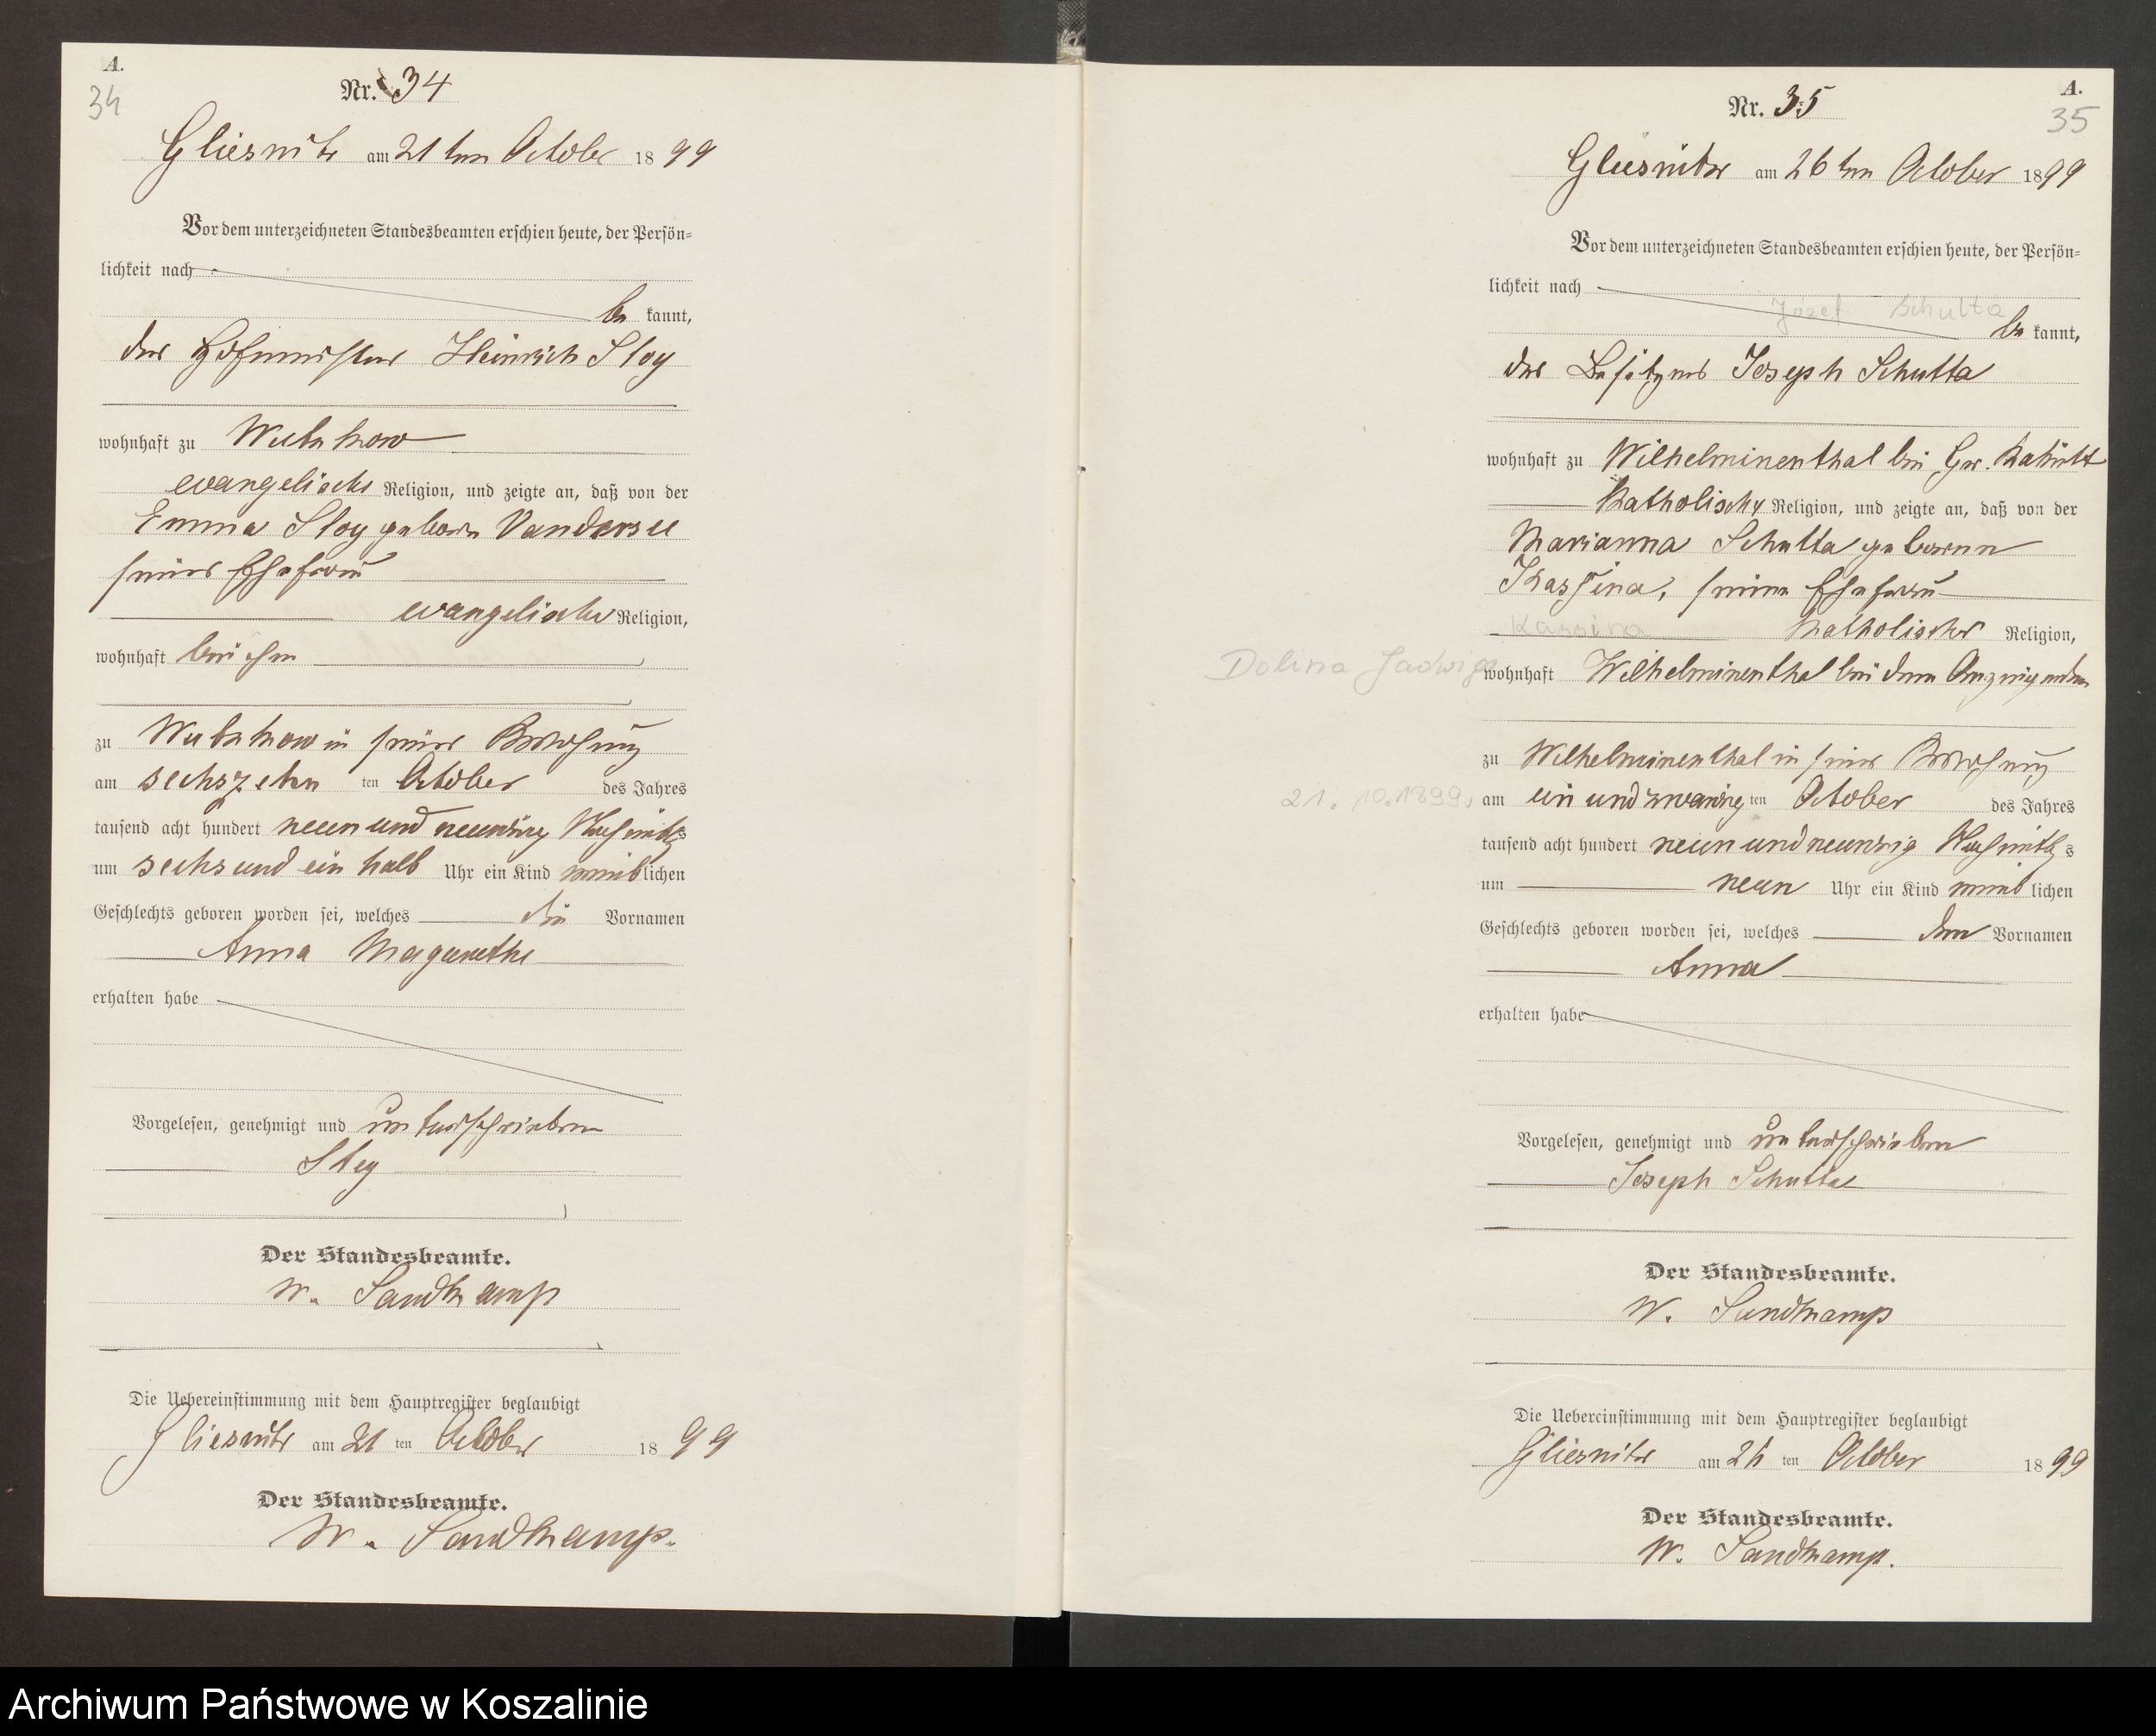 A.
34
Nr. 34
Gliesnitz am 21ten October 1899
Vor dem unterzeichneten Standesbeamten erschien heute, der Persön-
lichkeit nach
be kannt,
der Hofmeister Heinrich Stoy
wohnhaft zu Wutzkow
evangelischer Religion, und zeigte an, daß von der
Emma Stoy geboren Vandersee
seiner Ehefrau
evangelischer Religion,
wohnhaft bei ihm
zu Wutzkow in seiner Wohnung
am sechszehn ten October des Jahres
tausend acht hundert neun und neunzig Nachmittags
um sechs und ein halb Uhr ein Kind weiblichen
Geschlechts geboren worden sei, welches die Vornamen
Anna Margarethe
erhalten habe
Vorgelesen, genehmigt und unterschrieben
Stoy
Der Standesbeamte.
W. Sandkamp
Die Uebereinstimmung mit dem Hauptregister beglaubigt
Gliesnitz am 21 ten October 1899
Der Standesbeamte.
W. Sandkamp.
A.
35
Nr. 35
Gliesnitz am 26ten October 1899
Vor dem unterzeichneten Standesbeamten erschien heute, der Persön-
lichkeit nach
Józef Schutta
be kannt,
der Besitzer Joseph Schutta
wohnhaft zu Wilhelminenthal bei Gr.
katholischer Religion, und zeigte an, daß von der
Marianna Schutta geborenen
Kassina, seiner Ehefrau
Kassina
katholischer Religion,
Dolina Jadwigi
wohnhaft Wilhelminenthal bei dem Anzeigenden
zu Wilhelminenthal in seiner Wohnung
21.10.1899.
am ein und zwanzig ten October des Jahres
tausend acht hundert neun und neunzig Nachmittags
um neun Uhr ein Kind weib lichen
Geschlechts geboren worden sei, welches den Vornamen
Anna
erhalten habe
Vorgelesen, genehmigt und unterschrieben
Joseph Schutta
Der Standesbeamte.
W. Sandkamp
Die Uebereinstimmung mit dem Hauptregister beglaubigt
Gliesnitz am 26 ten October 1899
Der Standesbeamte.
W. Sandkamp.
Archiwum Państwowe w Koszalinie